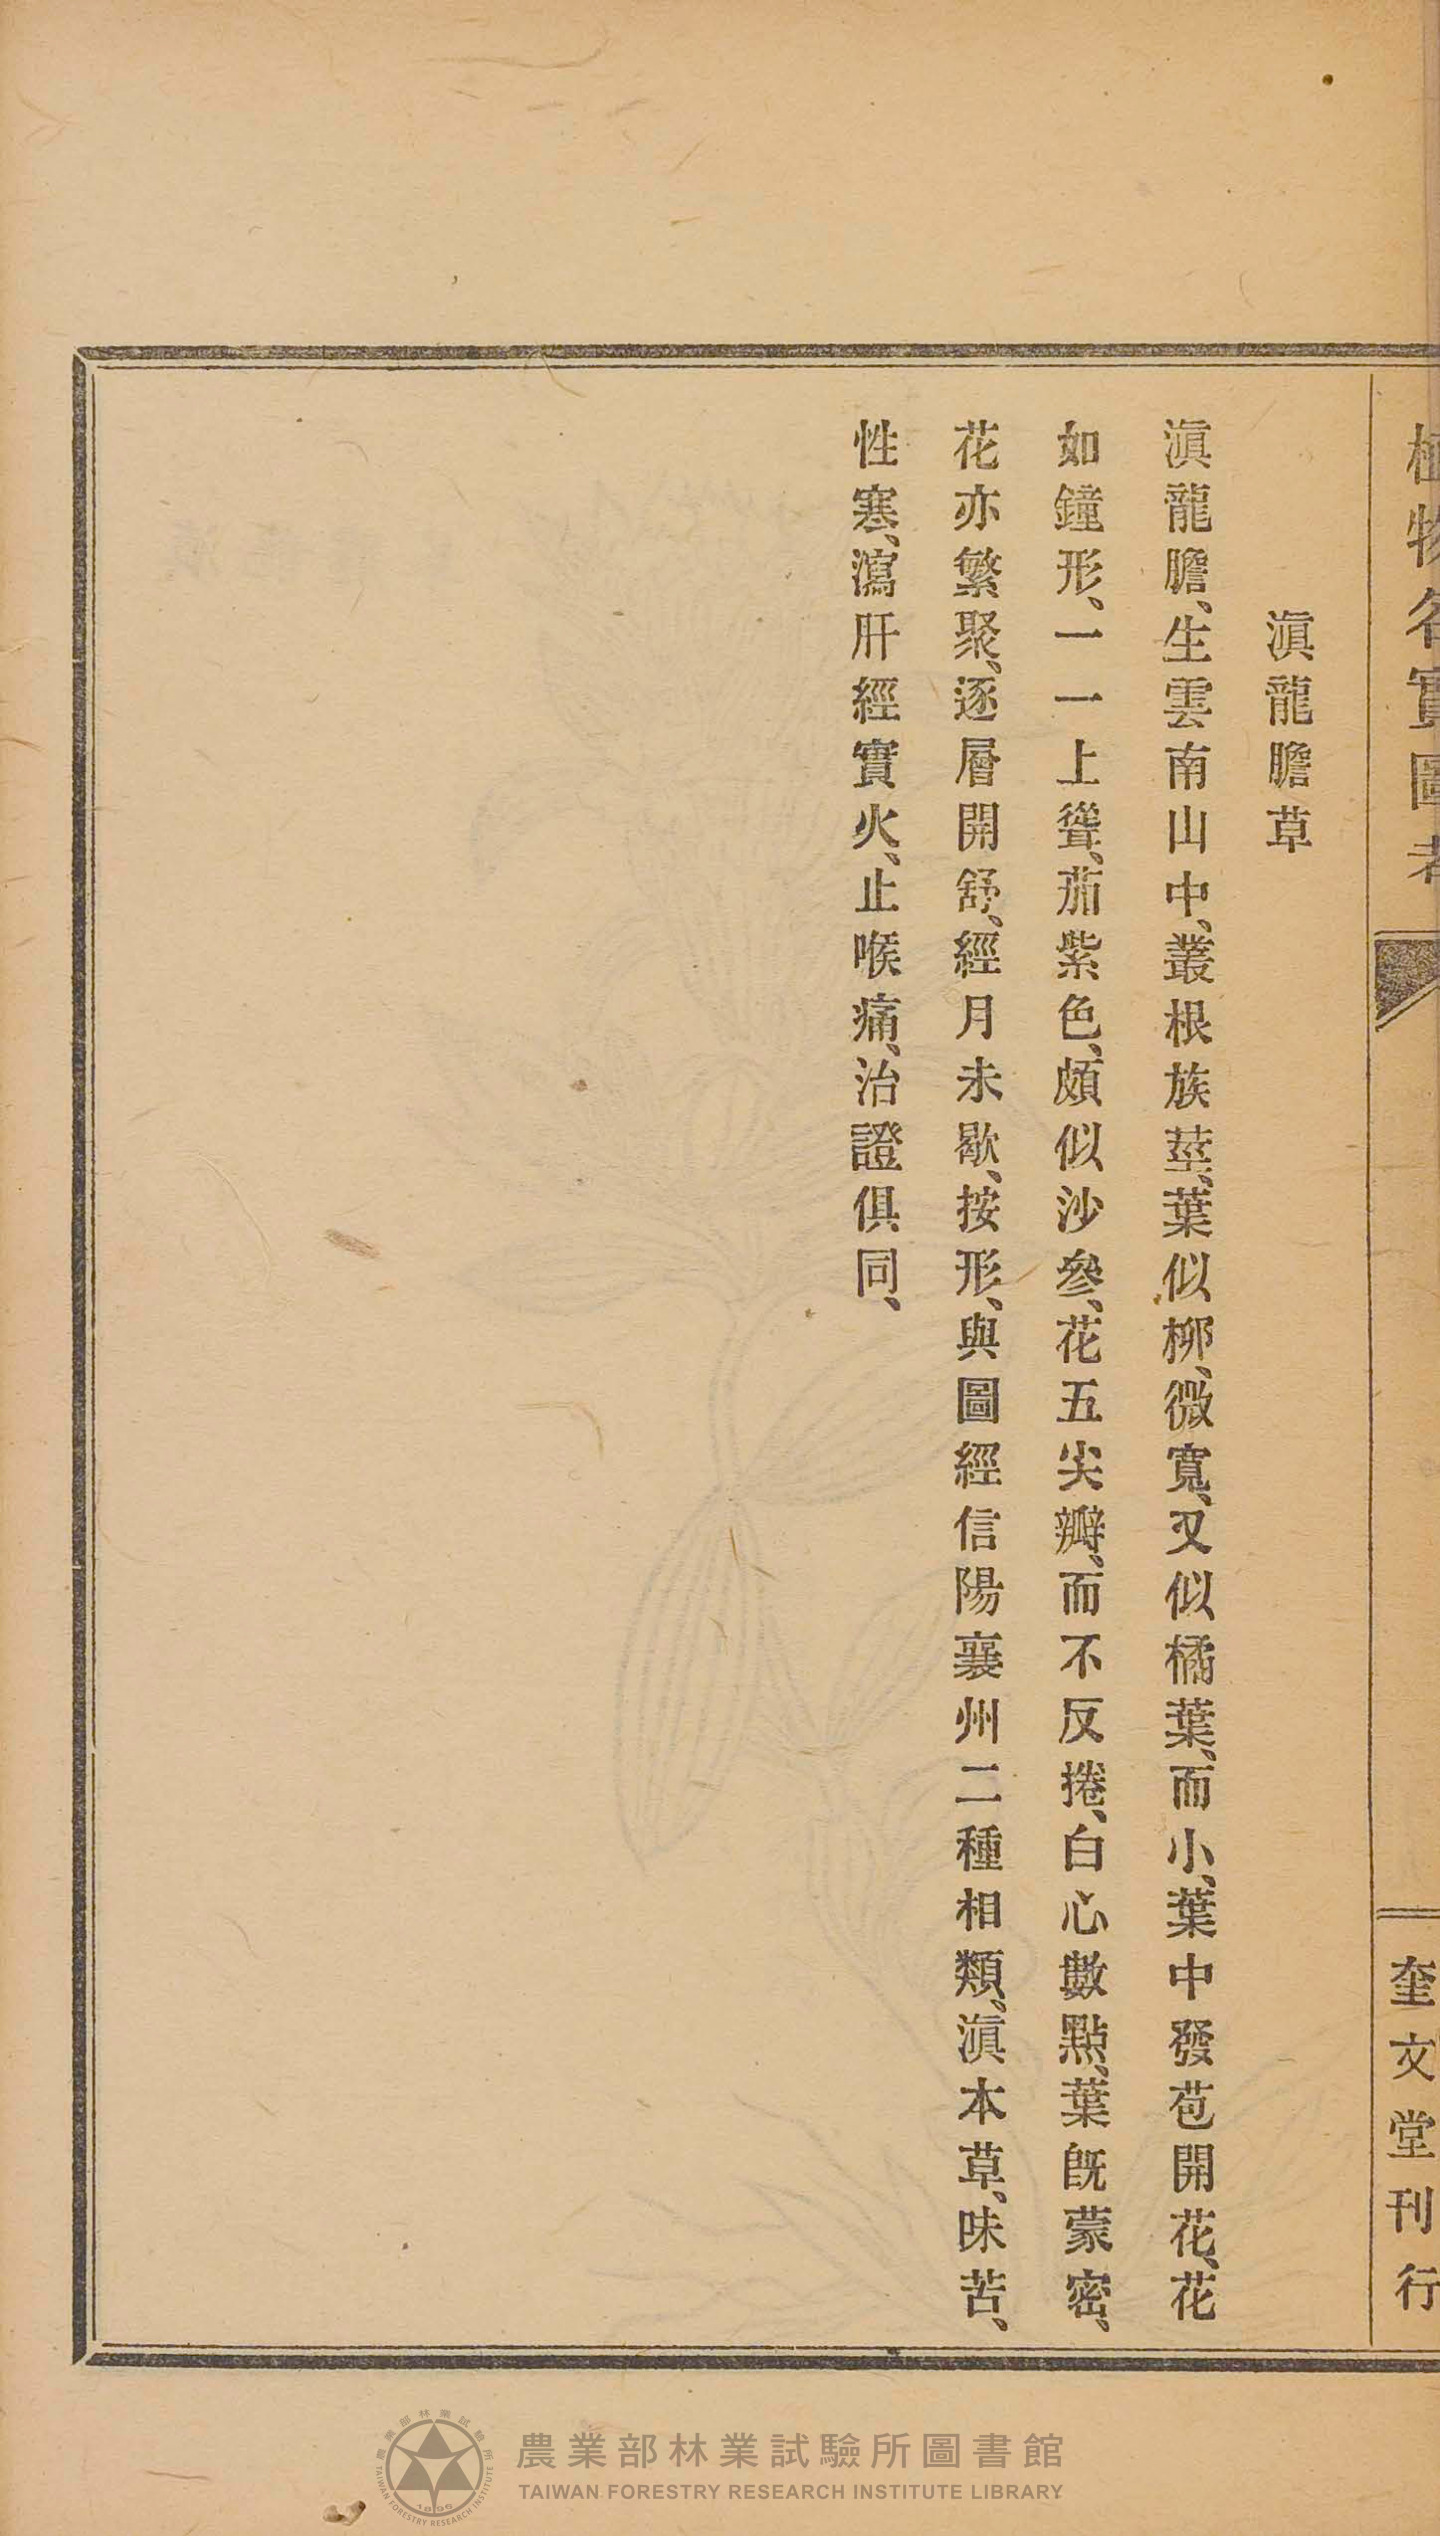 植物名實圖考
奎文堂刊行
滇龍膽草
滇龍膽、生雲南山中、叢根族莖、葉似柳、微寬、又似橘葉、而小、葉中發苞開花、花
如鐘形、一一上聳、茄紫色、頗似沙參、花五尖瓣、而不反捲、白心數點、葉旣蒙密、
花亦繁聚、逐層開舒、經月未歇、按形、與圖經信陽襄州二種相類、滇本草、味苦、
性寒、瀉肝經實火、止喉痛、治證俱同、
農業部林業試驗所
TAIWAN FORESTRY RESEARCH INSTITUTE
1895
農業部林業試驗所圖書館
TAIWAN FORESTRY RESEARCH INSTITUTE LIBRARY